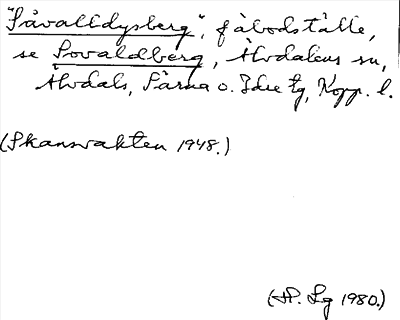 "Såvalldysberg", fäbodställe,
se Sovaldberg, Älvdalens sn,
Älvdals, Särna o. Idre tg, Kopp. l.
(Skansvakten 1948.)
(H. Lg 1980.)